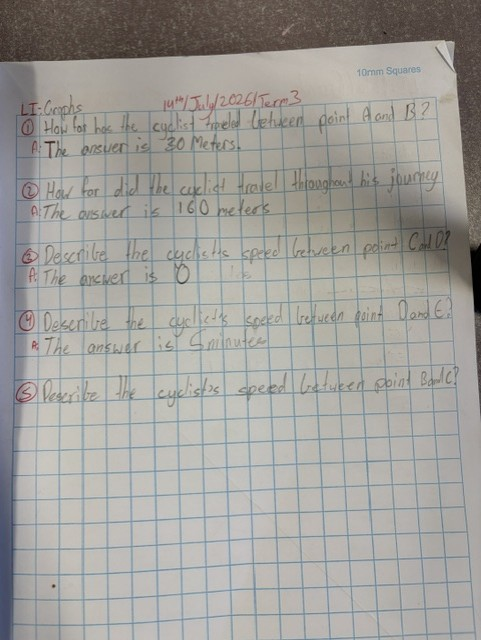 10mm Squares
LI: Graphs 14th/July/2026/Term 3
① How far has the cyclist traveled between point A and B?
A: The answer is 30 Meters.
② How far did the cyclist travel throughout his journey
A: The answer is 160 meters
③ Describe the cyclist's speed between point C and D?
A: The answer is 0
④ Describe the cyclist's speed between point D and E?
A: The answer is 5 minutes
⑤ Describe the cyclist's speed between point B and C?